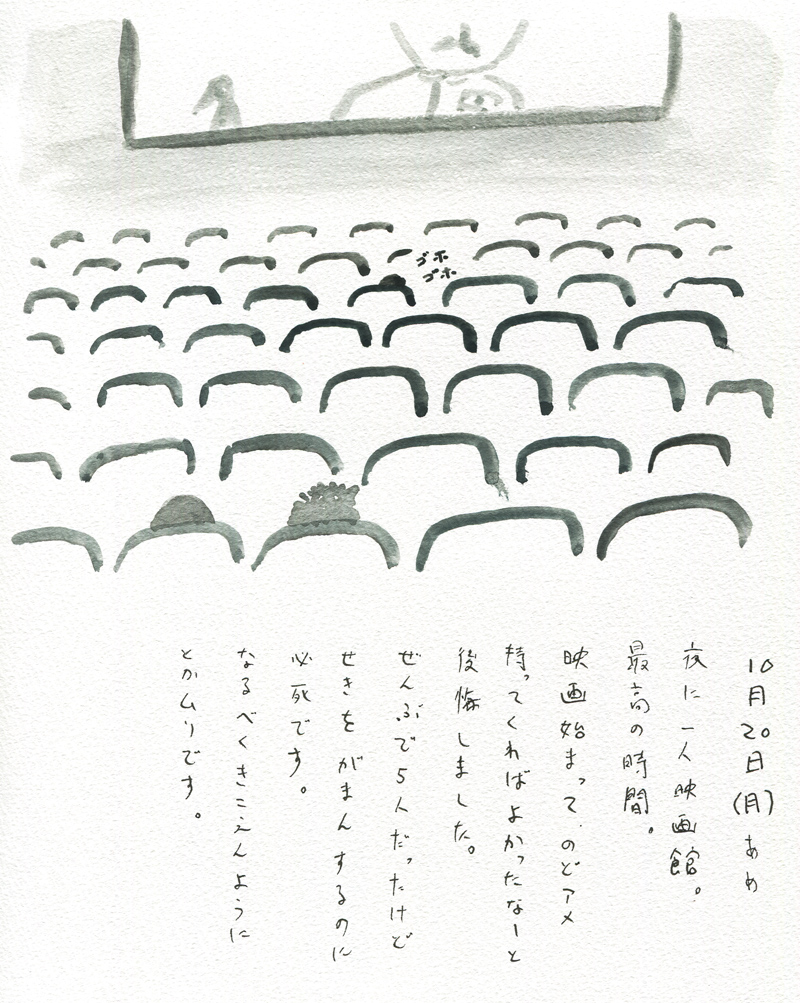 ゴホ
ゴホ
10月20日(月)あめ
夜に一人映画館。
最高の時間。
映画始まって、のどアメ
持ってくればよかったなーと
後悔しました。
ぜんぶで5人だったけど
せきをがまんするのに
必死です。
なるべくきこえんように
とかムリです。